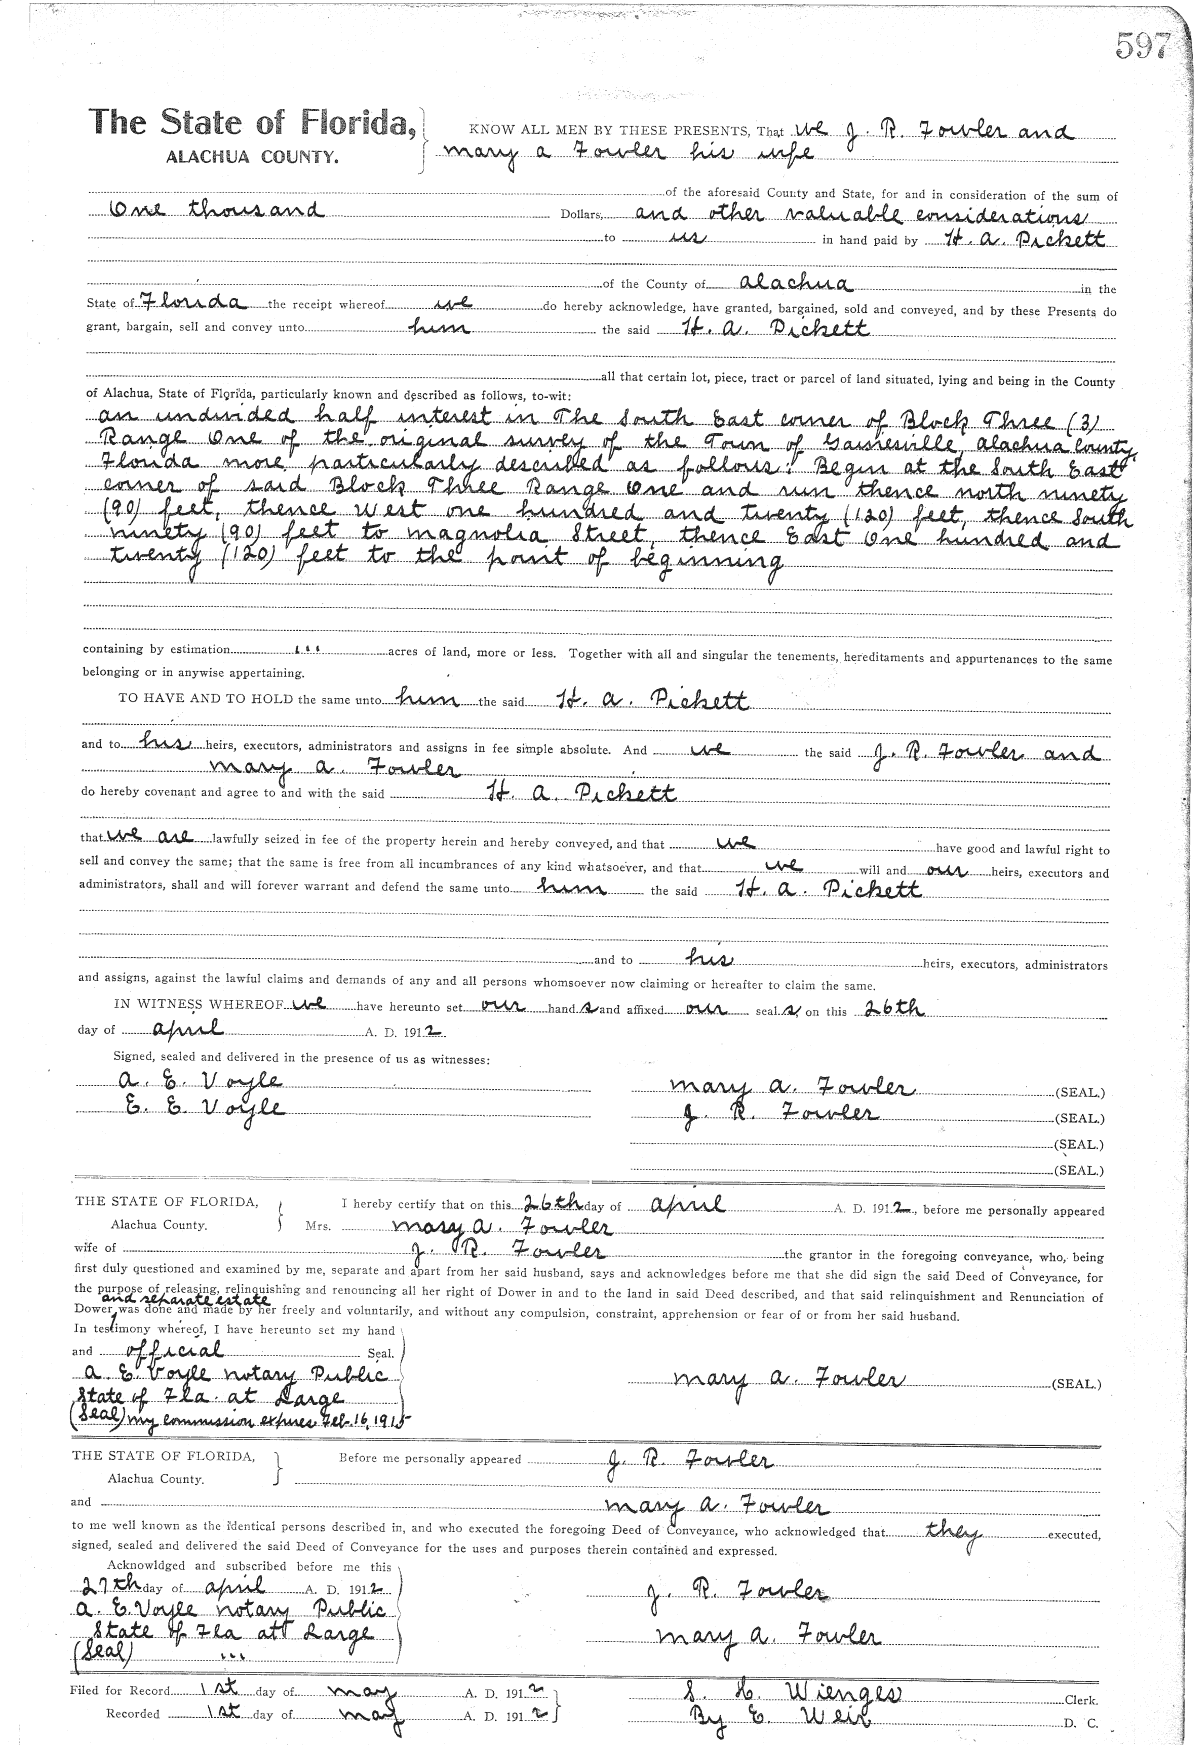 597
The State of Florida, KNOW ALL MEN BY THESE PRESENTS, That we J. R. Fowler and
ALACHUA COUNTY. Mary A Fowler his wife
of the aforesaid County and State, for and in consideration of the sum of
One thousand Dollars, and other valuable considerations
to us in hand paid by H. A. Pickett
of the County of Alachua in the
State of Florida the receipt whereof we do hereby acknowledge, have granted, bargained, sold and conveyed, and by these Presents do
grant, bargain, sell and convey unto him the said H. A. Pickett
all that certain lot, piece, tract or parcel of land situated, lying and being in the County
of Alachua, State of Florida, particularly known and described as follows, to-wit:
An undivided half interest in The South East corner of Block Three (3)
Range One of the original survey of the Town of Gainesville, Alachua County,
Florida more particularly described as follows: Begin at the South East
corner of said Block Three Range One and run thence north ninety
(90) feet, thence West one hundred and twenty (120) feet, thence South
ninety (90) feet to Magnolia Street, thence East One hundred and
twenty (120) feet to the point of beginning
containing by estimation ... acres of land, more or less. Together with all and singular the tenements, hereditaments and appurtenances to the same
belonging or in anywise appertaining.
TO HAVE AND TO HOLD the same unto him the said H. A. Pickett
and to his heirs, executors, administrators and assigns in fee simple absolute. And we the said J. R. Fowler and
Mary A. Fowler
do hereby covenant and agree to and with the said H. A. Pickett
that we are lawfully seized in fee of the property herein and hereby conveyed, and that we have good and lawful right to
sell and convey the same; that the same is free from all incumbrances of any kind whatsoever, and that we will and our heirs, executors and
administrators, shall and will forever warrant and defend the same unto him the said H. A. Pickett
and to his heirs, executors, administrators
and assigns, against the lawful claims and demands of any and all persons whomsoever now claiming or hereafter to claim the same.
IN WITNESS WHEREOF we have hereunto set our hands and affixed our seals, on this 26th
day of April A. D. 1912
Signed, sealed and delivered in the presence of us as witnesses:
A. E. Voyle Mary A. Fowler (SEAL.)
E. E. Voyle J. R. Fowler (SEAL.)
(SEAL.)
(SEAL.)
THE STATE OF FLORIDA, I hereby certify that on this 26th day of April A. D. 1912, before me personally appeared
Alachua County. Mrs. Mary A. Fowler
wife of J. R. Fowler the grantor in the foregoing conveyance, who, being
first duly questioned and examined by me, separate and apart from her said husband, says and acknowledges before me that she did sign the said Deed of Conveyance, for
the purpose of releasing, relinquishing and renouncing all her right of Dower in and to the land in said Deed described, and that said relinquishment and Renunciation of
and separate estate
Dower was done and made by her freely and voluntarily, and without any compulsion, constraint, apprehension or fear of or from her said husband.
In testimony whereof, I have hereunto set my hand
and official Seal.
A. E. Voyle Notary Public Mary A. Fowler (SEAL.)
State of Fla. at Large
(Seal) My commission expires Feb. 16, 1915
THE STATE OF FLORIDA, Before me personally appeared J. R. Fowler
Alachua County.
and Mary A. Fowler
to me well known as the identical persons described in, and who executed the foregoing Deed of Conveyance, who acknowledged that they executed,
signed, sealed and delivered the said Deed of Conveyance for the uses and purposes therein contained and expressed.
Acknowldged and subscribed before me this
27th day of April A. D. 1912 J. R. Fowler
A. E. Voyle Notary Public
State of Fla att Large Mary A. Fowler
(Seal) ...
Filed for Record 1st day of May A. D. 1912 S. H. Wienges Clerk.
Recorded 1st day of May A. D. 1912 By E. Weir D. C.